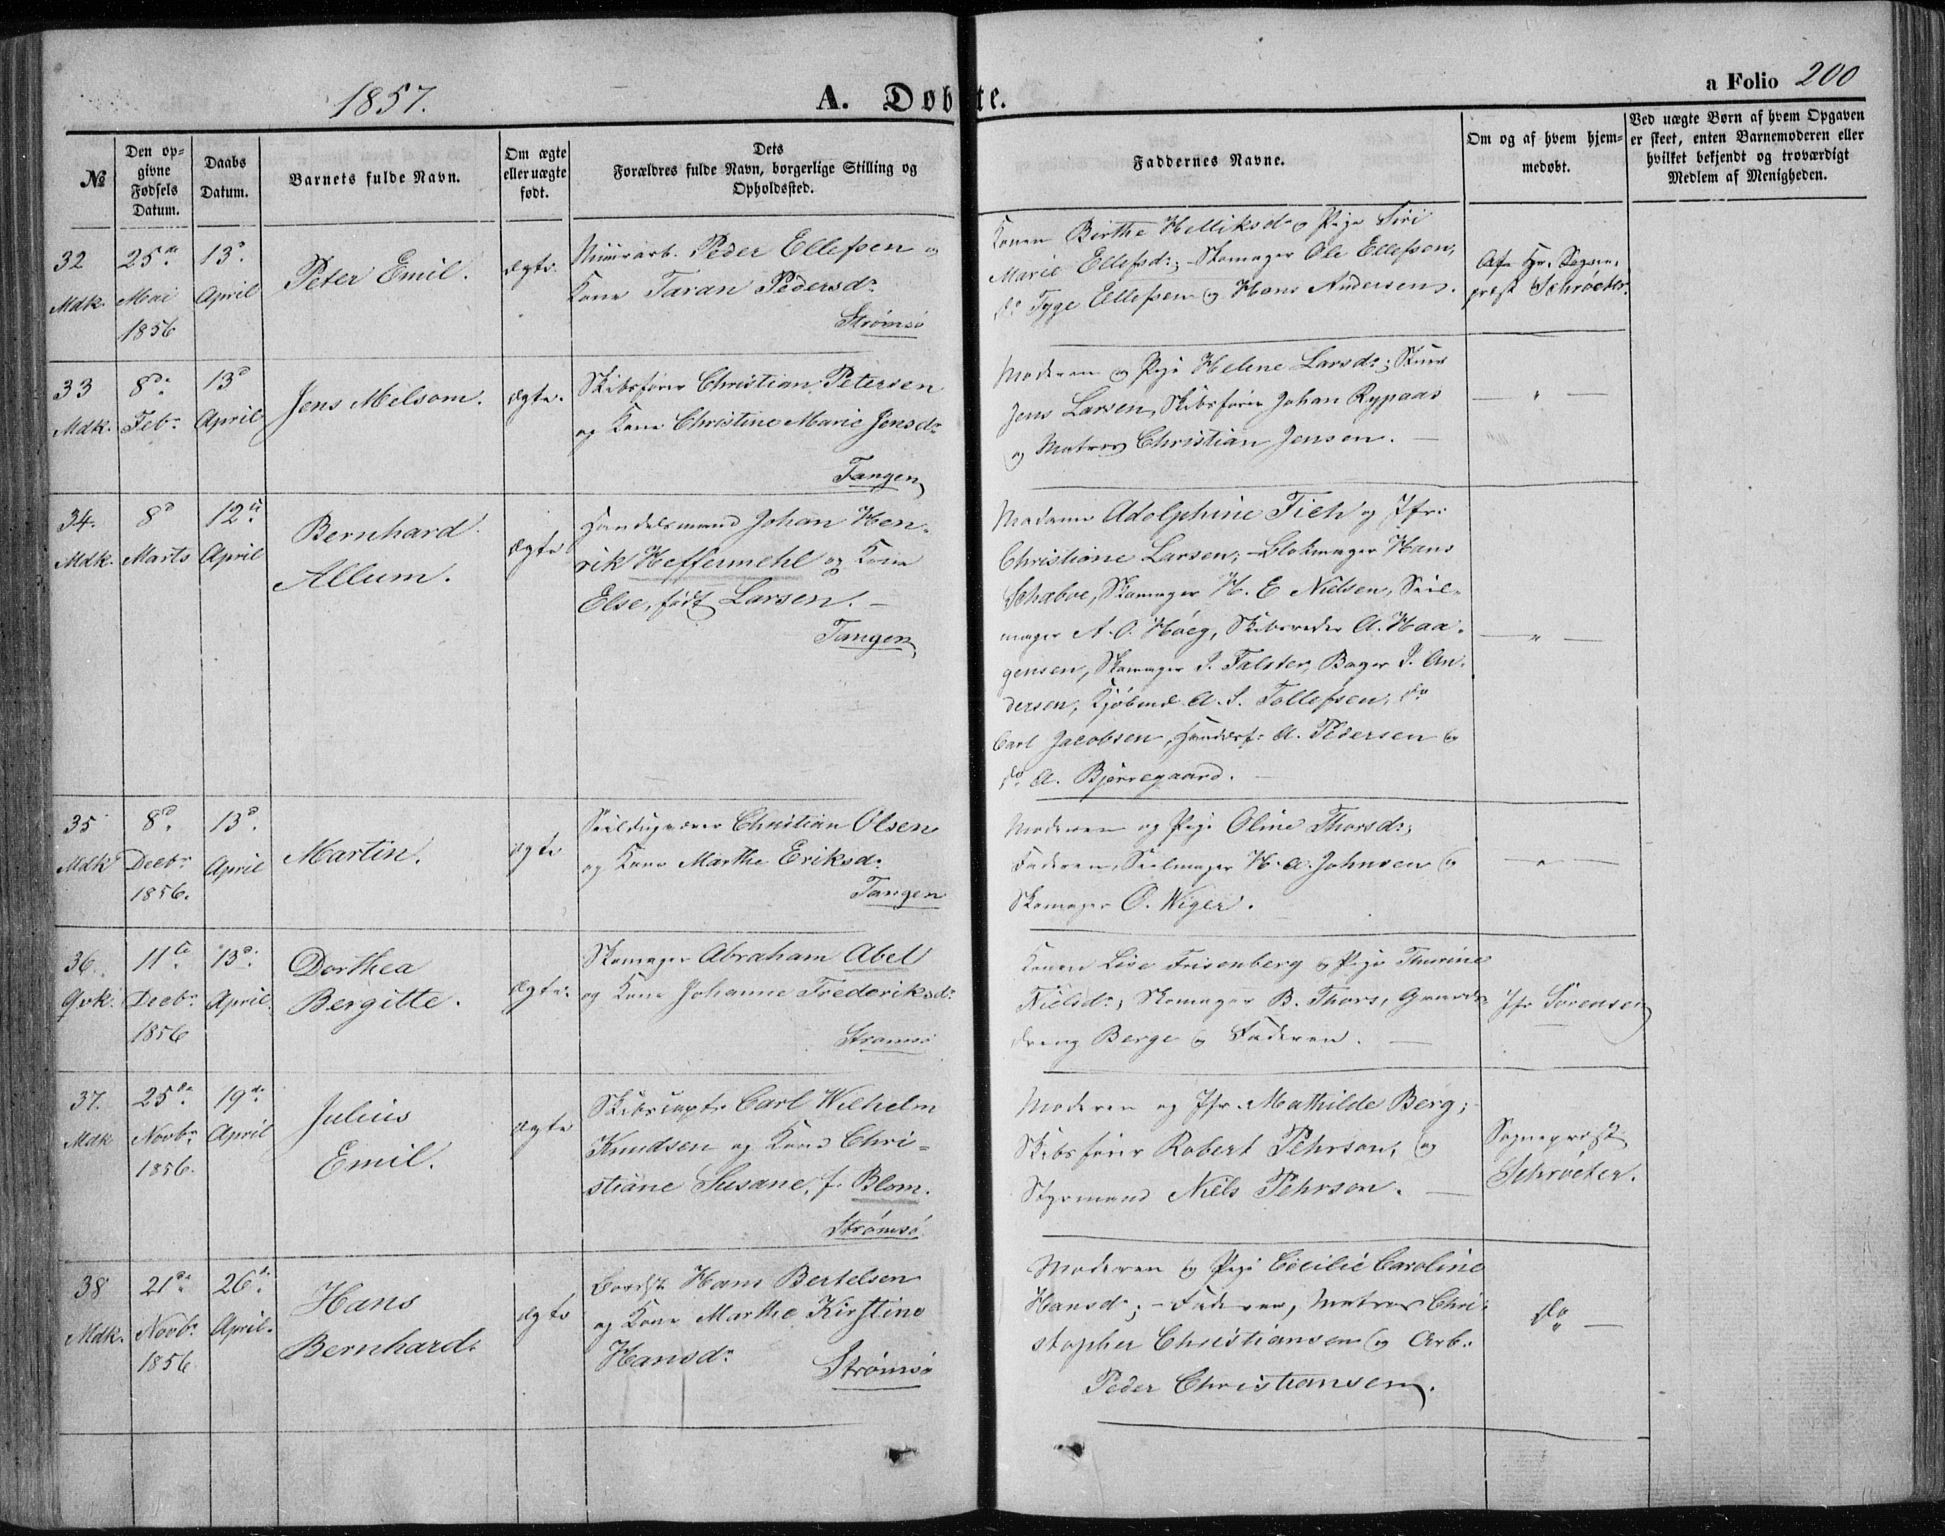 1857.
A. Døbte.
a Folio 200
№
Den op-
givne
Fødsels
Datum.
Daabs
Datum.
Barnets fulde Navn.
Om ægte
eller uægte
født.
Dets
Forældres fulde Navn, borgerlige Stilling og
Opholdssted.
Faddernes Navne.
Om og af hvem hjem-
medøbt.
Ved uægte Børn af hvem Opgaven
er skeet, enten Barnemoderen eller
hvilket bekjendt og troværdigt
Medlem af Menigheden.
32
Mdk.
25de
Mai
1856
13d
April
Peter Emil.
ægte.
Muurarb. Peder Ellefsen og
Kone Taran Pedersdr
Strømsø
Konen Birthe Helliksdr og Pige Siri
Marie Ellefsdr; Skomager Ole Ellefsen,
do Tyge Ellefsen og Hans Andersen.
Af Hr. Sogne-
prest Schrøeter.
33
Mdk.
8de
Febr
13d
April
Jens Melsom.
ægte.
Skibsfører Christian Petersen
og Kone Christine Marie Jensdr
Tangen
Moderen og Pige Helene Larsdr;
Jens Larsen, Skibsfører Johan Rypaas
og Matros Christian Jensen. —
— " —
34.
Mdk.
8d
Marts
12te
April
Bernhard
Allum.
ægte
Handelsmand Johan Hen-
rik Heffermehl og Kone
Else, født Larsen. —
Tangen
Madame Adolphine Fich og Jfr:
Christiane Larsen; Blokmager Hans
Schaboe, Skomager H. E Nielsen, Seil-
mager A. O. Høeg, Skibsreder A. Haa-
gensen, Skomager J. Falster, Bager J. An-
dersen, Kjøbmd A. S. Tollefsen, do
Carl Jacobsen, Handelsf. A. Pedersen og
do A. Bjerregaard. —
— " —
35
Mdk
8d
Decbr
1856.
13d.
April
Martin.
ægte
Seildugvæver Christian Olsen
og Kone Marthe Eriksdr
Tangen
Moderen og Pige Oline Thorsdr;
Faderen, Seilmager H. A. Johnsen og
Skomager O. Wiger.
— " —
36.
Qvk.
11te
Decbr
1856
13d.
April.
Dorthea
Bergitte.
ægte.
Skomager Abraham Abel
og Kone Johanne Frederiksdr
Strømsø
Konen Lise Frisenberg og Pige Thurine
Nielsdr; Skomager B. Thors, Gaards-
dreng Berge og Faderen. —
Jfr Sørensen
37.
Mdk
25de
Novbr
1856.
19de
April
Julius
Emil.
ægte
Skibscaptn Carl Wilhelm
Knudsen og Kone Chri-
stiane Susane, f. Blom.
Strømsø
Moderen og Jfr. Mathilde Berg;
Skibsfører Robert Pehrson, og
Styrmand Niels Pehrson. —
Sogneprest
Schrøeter.
38
Mdk.
21de
Novbr
1856
26de
April.
Hans
Bernhard.
ægte
Bordst. Hans Bertelsen
og Kone Marthe Kirstine
Hansdr
Strømsø
Moderen og Pige Cecilie Caroline
Hansdr; – Faderen, Matros Chri-
stopher Christiansen og Arb.
Peder Christiansen.
do —